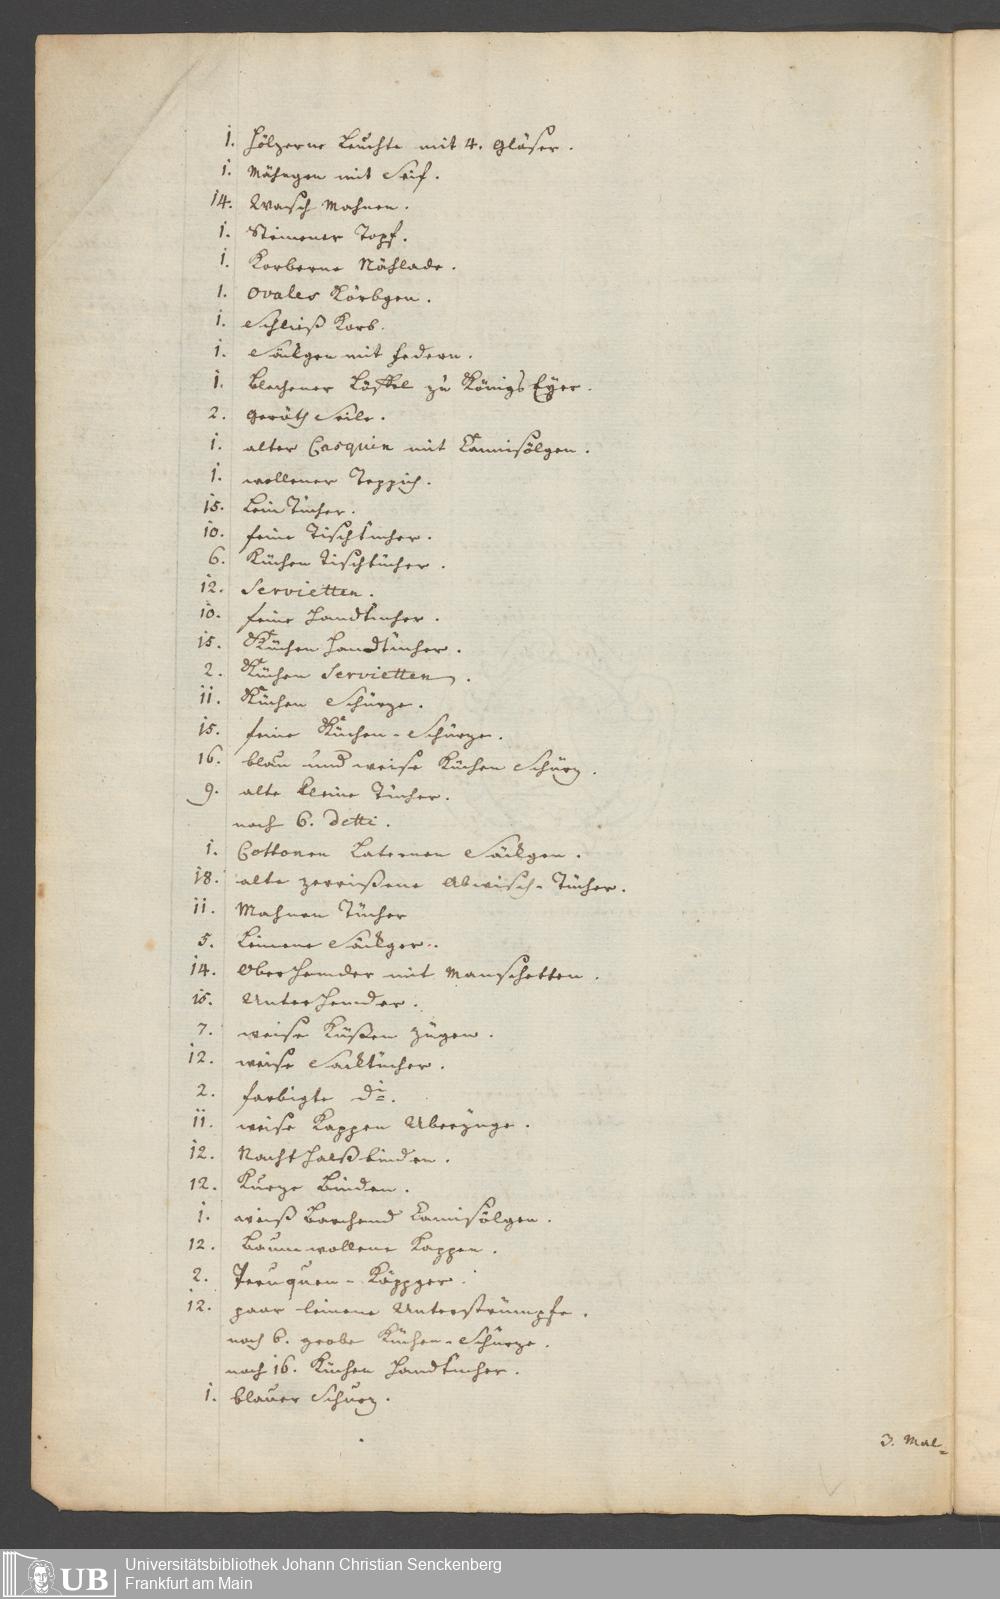 1. Hölzerne Leuchte mit 4. Gläser.
1. Mähngen mit Seif.
14. Wasch Mahnen.
1. Steinener Topf.
1. Korberne Nählade.
1. Ovales Körbgen.
1. Schließ Korb.
1. Säckgen mit Federn.
1. Blechener Löffel zu Königs Eyer.
2. Geräth Seile.
1. alter Casquin mit Camisölgen.
1. wollener Teppich.
15. Lein Tücher.
10. feine Tischtücher.
6. Küchen Tischtücher.
12. Servietten.
10. feine Handtücher.
15. Küchen Handtücher.
2. Küchen Servietten.
11. Küchen Schürze.
15. feine Küchen-Schürze.
16. blau und weise Küchen Schürz.
9. alte kleine Tücher.
noch 6. detti.
1. Cottonen Laternen Säckgen.
18. alte zerrißene Abwisch-Tücher.
11. Mahnen Tücher
5. Leinene Säckger.
14. Oberhemder mit Manschetten.
15. Unterhemder.
7. weise Küßen Zügen.
12. weise Sacktücher.
2. farbigte di.
11. weise Kappen Uberzüge.
12. Nacht Halßbinden.
12. Kurze Binden.
1. weiß Barchend Camisölgen.
12. Baumwollene Kappen.
2. Peruquen-Käppger.
12. paar leinene Unterstrümpfe.
noch 6. grobe Küchen-Schürze.
noch 16. Küchen Handtücher.
1. blauer Schurz.
3. Mal=
UB
Universitätsbibliothek Johann Christian Senckenberg
Frankfurt am Main